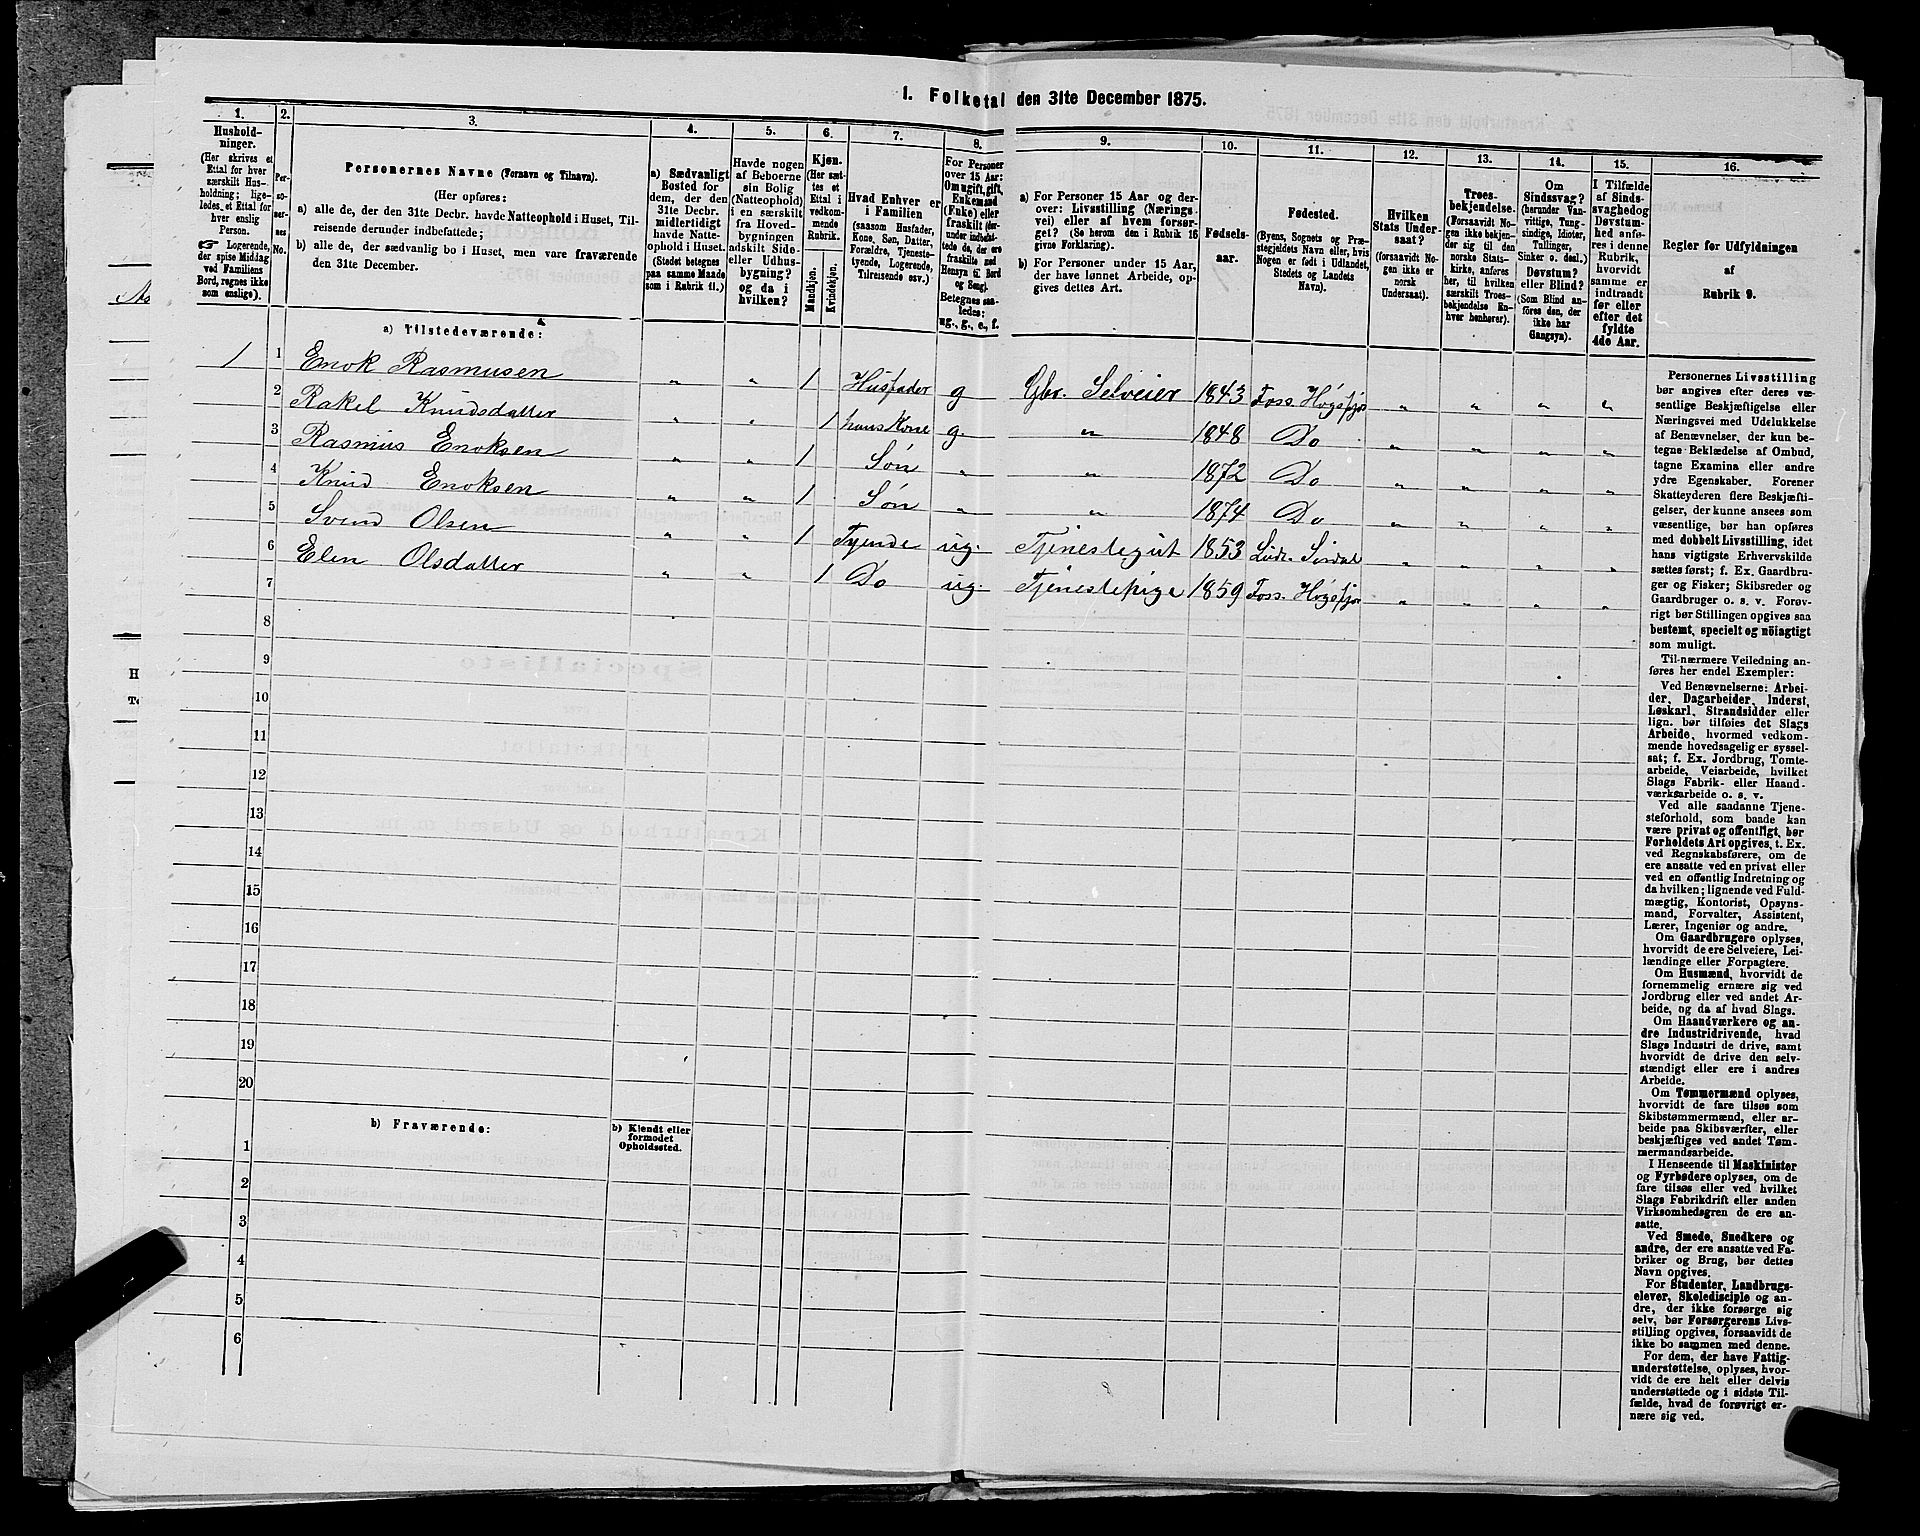 1. Folketal den 31te December 1875.
1.
Hushold-
ninger.
(Her skrives et
Ettal for hver
særskilt Hus-
holdning; lige-
ledes et Ettal for
hver enslig
Person.
Logerende,
der spise Middag
ved Familiens
Bord, regnes ikke
som enslige).
2.
Per-
so-
ner-
nes
No.
3.
Personernes Navne (Fornavn og Tilnavn).
(Her opføres:
a) alle de, der den 31te Decbr. havde Natteophold i Huset, Til-
reisende derunder indbefattede;
b) alle de, der sædvanlig bo i Huset, men vare fraværende
den 31te December.
4.
a) Sædvanligt
Bosted for
dem, der den
31te Decbr.
midlertidigt
havde Natte-
ophold i Huset.
(Stedet betegnes
paa samme Maade
som i Rubrik 11.)
5.
Havde nogen
af Beboerne
sin Bolig
(Natteophold)
i en særskilt
fra Hoved-
bygningen
adskilt Side-
eller Udhus-
bygning?
og da i
hvilken?
6.
Kjøn.
(Her sæt-
tes et
Ettal i
vedkom-
mende
Rubrik.
Mandkjøn.
Kvindekjøn.
7.
Hvad Enhver er
i Familien
(saasom Husfader,
Kone, Søn, Datter,
Forældre, Tjeneste-
tyende, Logerende,
Tilreisende osv.)
8.
For Personer
over 15 Aar:
Om ugift, gift,
Enkemand
(Enke) eller
fraskilt (der-
under indbefat-
tede de, der ere
fraskilte med
Hensyn til Bord
og Seng).
Betegnes saa-
ledes:
ug., g., e., f.
9.
a) For Personer 15 Aar og der-
over: Livsstilling (Nærings-
vei) eller af hvem forsør-
get? (Se herom den i Rubrik 16
givne Forklaring).
b) For Personer under 15 Aar,
der have lønnet Arbeide, op-
gives dettes Art.
10.
Fødsels-
aar.
11.
Fødested.
(Byens, Sognets og Præ-
stegjeldets Navn eller, hvis
Nogen er født i Udlandet,
Stedets og Landets
Navn).
12.
Hvilken
Stats Under-
saat?
(forsaavidt No-
gen ikke er
norsk
Undersaat).
13.
Troes-
bekjendelse.
(Forsaavidt No-
gen ikke bekjen-
der sig til den
norske Stats-
kirke, anføres
her, til hvilken
særskilt Troes-
bekjendelse En-
hver henhører).
14.
Om
Sindssvag?
(herunder Van-
vittige, Tung-
sindige, Idioter,
Tullinger,
Sinker o. desl.)
Døvstum?
eller Blind?
(Som Blind an-
føres den, der
ikke har
Gangsyn).
15.
I Tilfælde
af Sinds-
svaghed og
Døvstum-
hed anfø-
res i denne
Rubrik,
hvorvidt
samme er
indtraadt
før eller
efter det
fyldte
4de Aar.
16.
Regler for Udfyldningen
af
Rubrik 9.
a) Tilstedeværende:
1 1 Enok Rasmusen " " 1 Husfader g Gbr. Selveier 1843 Foss. Høgsfjor " " " "
2 Rakel Knudsdatter " " 1 hans Kone g. " 1848 Do " " " "
3 Rasmus Enoksen " " 1 Søn " " 1872 Do " " " "
4 Knud Enoksen " " 1 Søn " " 1874 Do " " " "
5 Svend Olsen " " 1 Tyende ug. Tjenestegut 1853 Sirdal " " " "
6 Elen Olsdatter " " 1 Do ug. Tjenestepige 1859 Foss. Høgsfjor " " " "
7
8
9
10
11
12
13
14
15
16
17
18
19
20
b) Fraværende:
b) Kjendt eller
formodet
Opholdssted.
1
2
3
4
5
6
Personernes Livsstilling
bør angives efter deres væ-
sentlige Beskjæftigelse eller
Næringsvei med Udelukkelse
af Benævnelser, der kun be-
tegne Beklædelse af Ombud,
tagne Examina eller andre
ydre Egenskaber. Forener
Skatteyderen flere Beskjæfti-
gelser, der kunne ansees som
væsentlige, bør han opføres
med dobbelt Livsstilling, idet
hans vigtigste Erhvervskilde
sættes først; f. Ex. Gaardbru-
ger og Fisker; Skibsreder og
Gaardbruger o. s. v. Forøv-
rigt bør Stillingen opgives saa
bestemt, specielt og nöiagtigt
som muligt.
Til nærmere Veiledning an-
føres her endel Exempler:
Ved Benævnelserne: Arbei-
der, Dagarbeider, Inderst,
Løskarl, Strandsidder eller
lign. bør tilføies det Slags
Arbeide, hvormed vedkom-
mende hovedsagelig er syssel-
sat; f. Ex. Jordbrug, Tomte-
arbeide, Veiarbeide, hvilket
Slags Fabrik- eller Haand-
værksarbeide o. s. v.
Ved alle saadanne Tjene-
steforhold, som baade kan
være privat og offentligt, bør
Forholdets Art opgives, f. Ex.
ved Regnskabsførere, om de
ere ansatte ved en privat eller
ved en offentlig Indretning og
da hvilken; lignende ved Fuld-
mægtig, Kontorist, Opsyns-
mand, Forvalter, Assistent,
Lærer, Ingeniør og andre.
Om Gaardbrugere oplyses,
hvorvidt de ere Selveiere, Lei-
lændinge eller Forpagtere.
Om Husmænd, hvorvidt de
fornemmelig ernære sig ved
Jordbrug eller ved andet Ar-
beide, og da af hvad Slags.
Om Haandværkere og an-
dre Industridrivende, hvad
Slags Industri de drive, samt
hvorvidt de drive den selv-
stændigt eller ere i andres
Arbeide.
Om Tømmermænd oplyses,
hvorvidt de fare tilsøs som
Skibstømmermænd, eller ar-
beide paa Skibsværfter, eller
beskjæftiges ved andet Tøm-
mermandsarbeide.
I Henseende til Maskinister
og Fyrbødere oplyses, om de
fare tilsøs eller ved hvilket
Slags Fabrikdrift eller anden
Virksomhedsgren de ere an-
satte.
Ved Smede, Snedkere og
andre, der ere ansatte ved Fa-
briker og Brug, bør dettes
Navn opgives.
For Studenter, Landbrugs-
elever, Skoledisciple og an-
dre, der ikke forsørge sig
selv, bør Forsørgerens Livs-
stilling opgives, forsaavidt de
ikke bo sammen med denne.
For dem, der have Fattig-
understøttelse, oplyses, hvor-
vidt de ere helt eller delvis
understøttede og i sidste Til-
fælde, hvad de forøvrigt er-
nære sig ved.